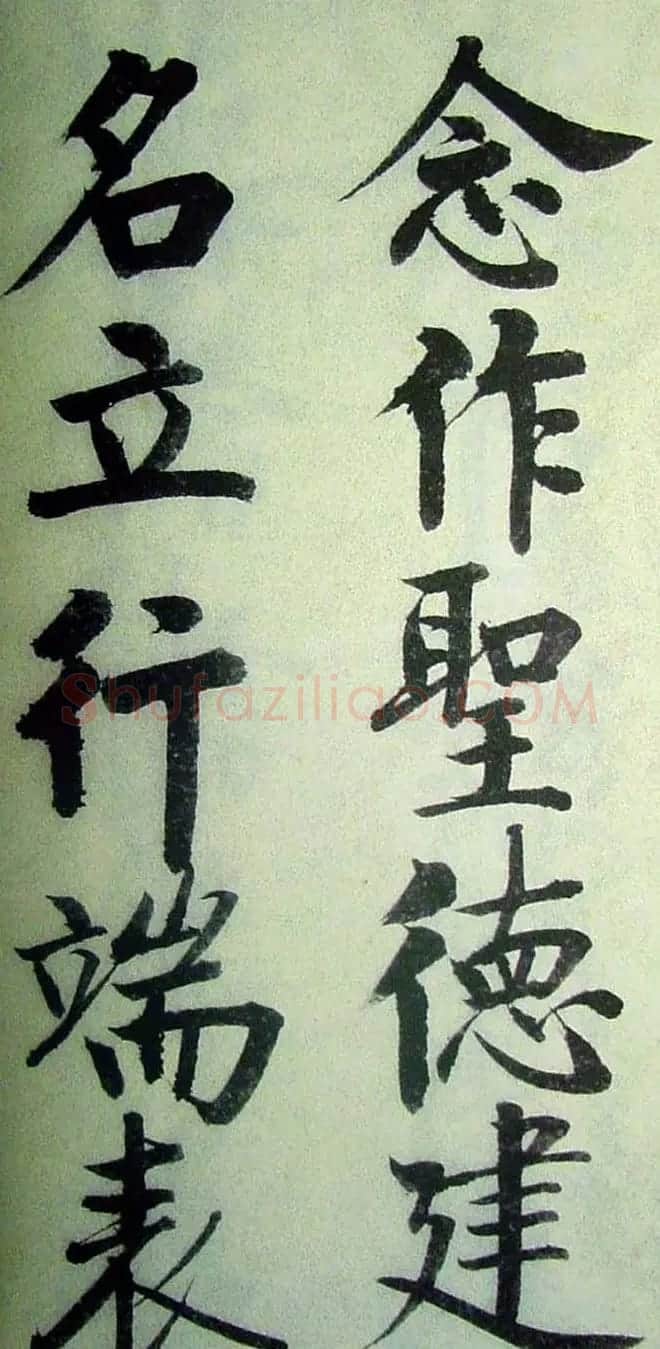 念作聖德建
名立行端表
Shufaziliao.COM